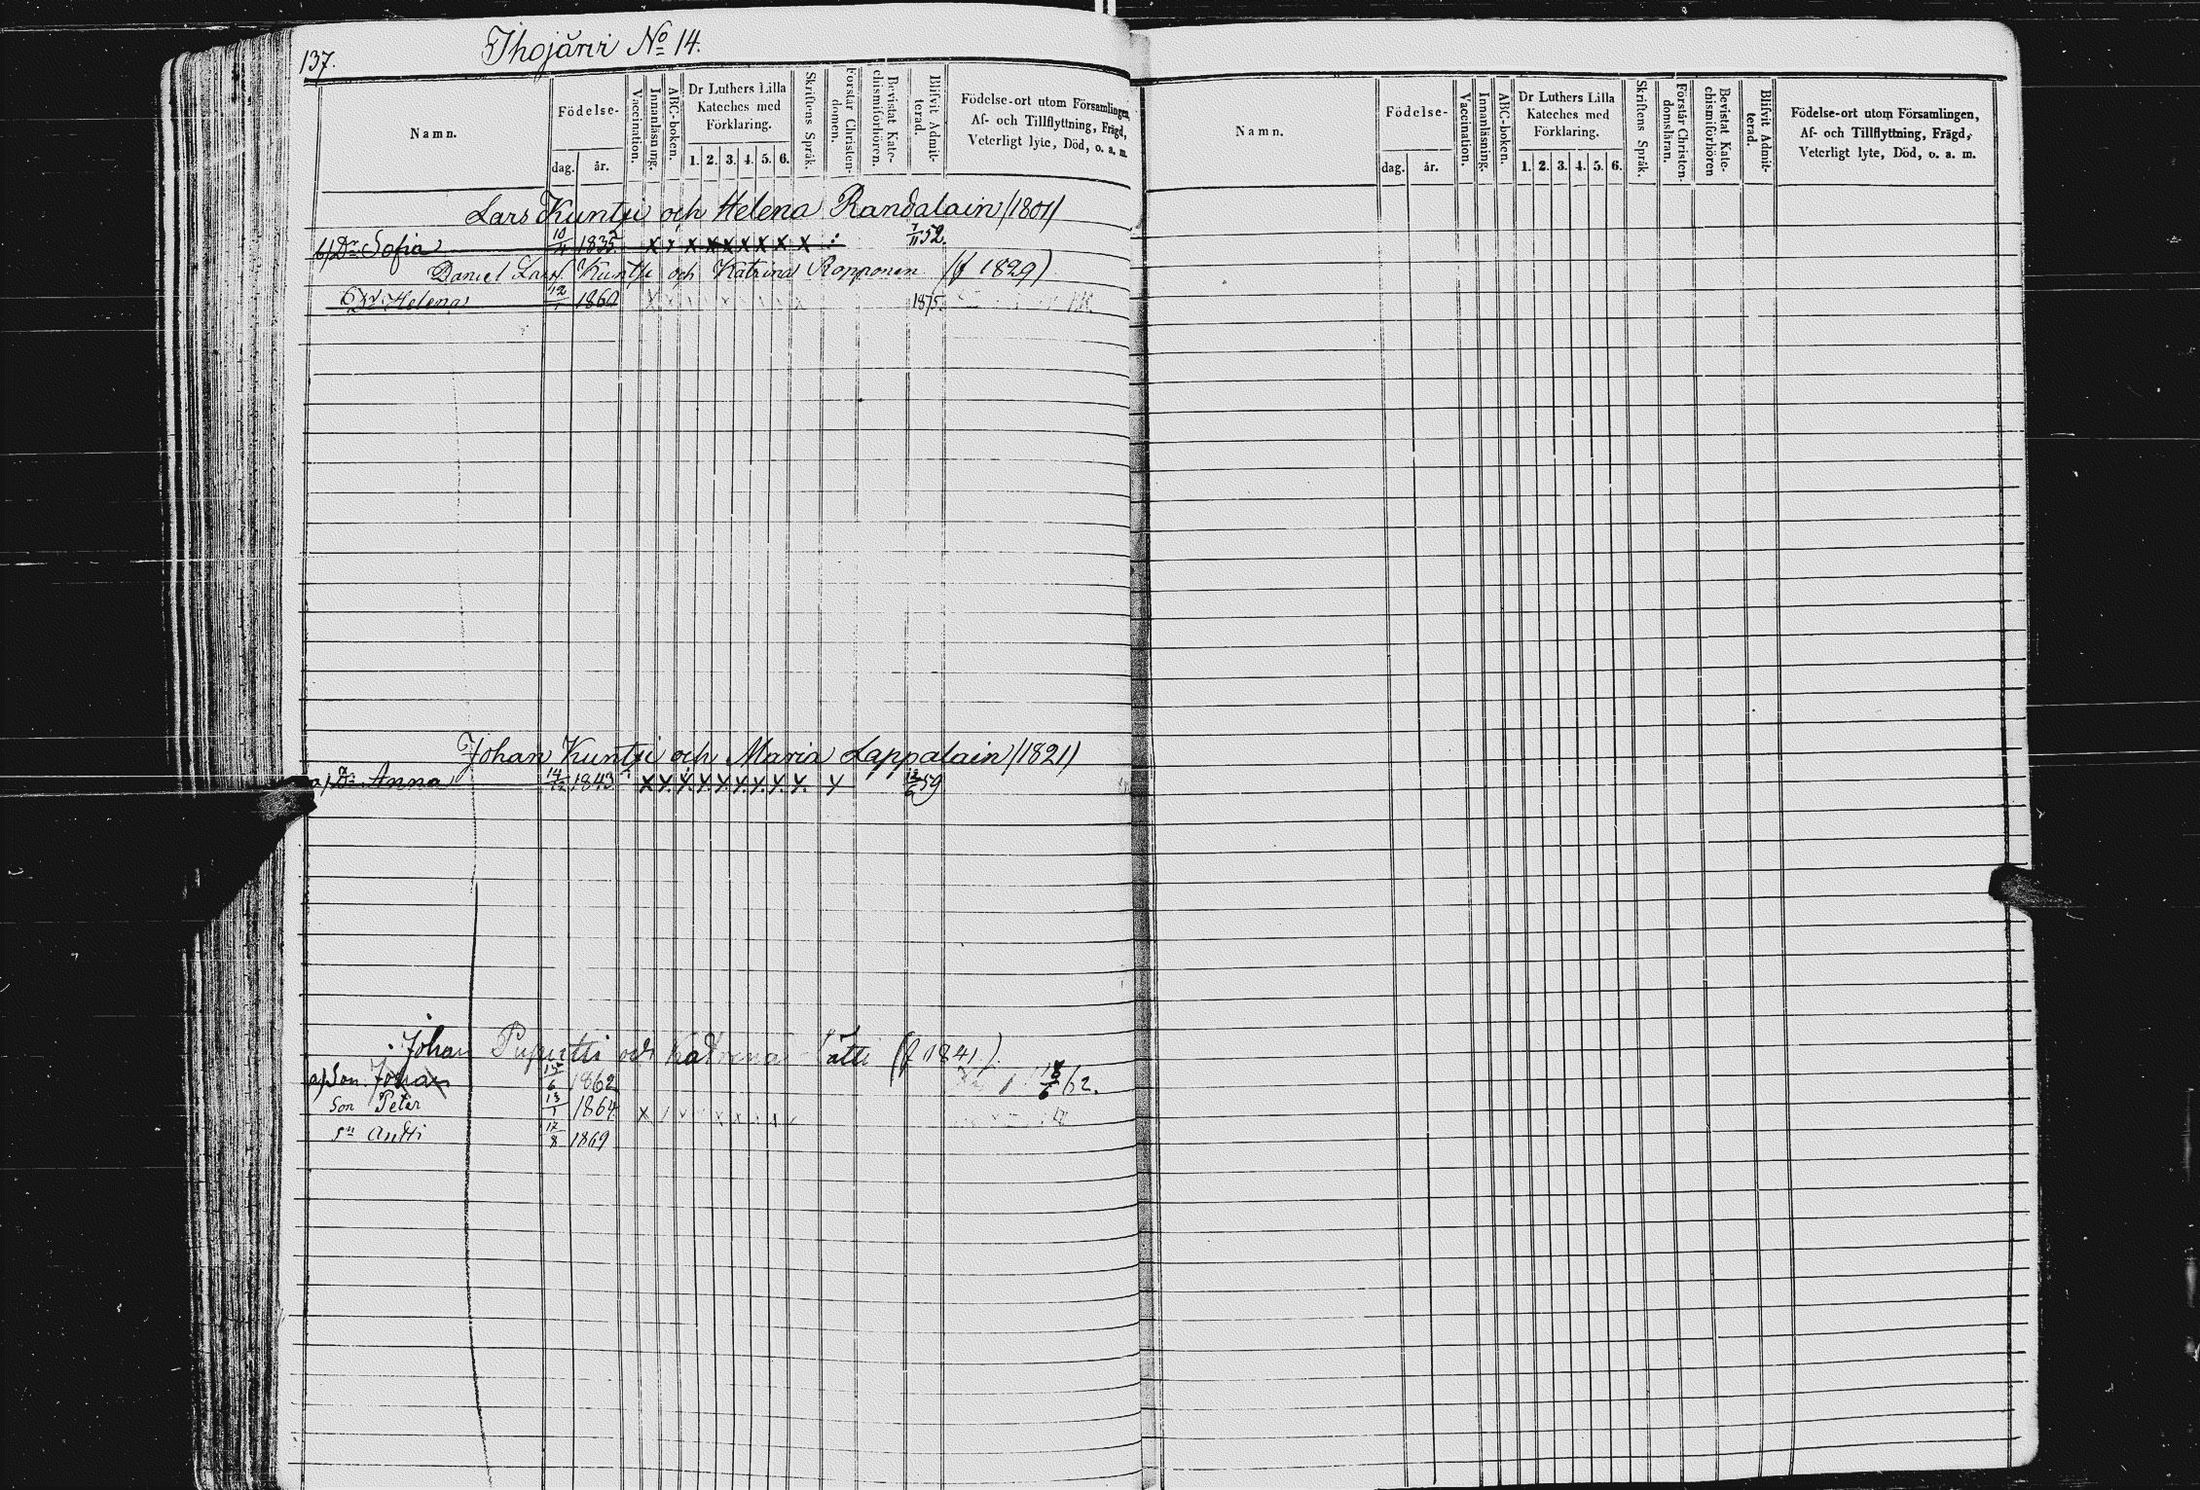 137.
Ihojärvi No 14.
Namn.
Födelse-
dag. år.
Vaccination.
Innanläsning.
ABC-boken.
Dr Luthers Lilla
Kateches med
Förklaring.
1. 2. 3. 4. 5. 6.
Skriftens Språk.
Förstår Christen-
domen.
Bevistat Kate-
chismiförhören.
Blifvit Admit-
terad.
Födelse-ort utom Församlingen,
Af- och Tillflyttning, Frägd,
Veterligt lyte, Död, o. a. m.
Lars Kuntsi och Helena Randalain (1801)
b) Dr Sofia 10/4 1835 x x x x x x x x x : 7/11 52.
Daniel Larss. Kuntsi och Katrina Ropponen (f 1829)
Dr Helena 12/1 1860 x x x x x x x x x 1875.
Johan Kuntsi och Maria Lappalain (1821)
a) Dr Anna 1843 x x x x x x x x x x 59
Johan Puputti och Katrina Lätti (f 1841.)
a) Son Johan 15/6 1862 62.
Son Peter 13/1 1864 x x x x x x x x
Sn Antti 17/8 1869
Namn.
Födelse-
dag. år.
Vaccination.
Innanläsning.
ABC-boken.
Dr Luthers Lilla
Kateches med
Förklaring.
1. 2. 3. 4. 5. 6.
Skriftens Språk.
Förstår Christen-
domsläran.
Bevistat Kate-
chismiförhören
Blifvit Admit-
terad.
Födelse-ort utom Församlingen,
Af- och Tillflyttning, Frägd,
Veterligt lyte, Död, o. a. m.